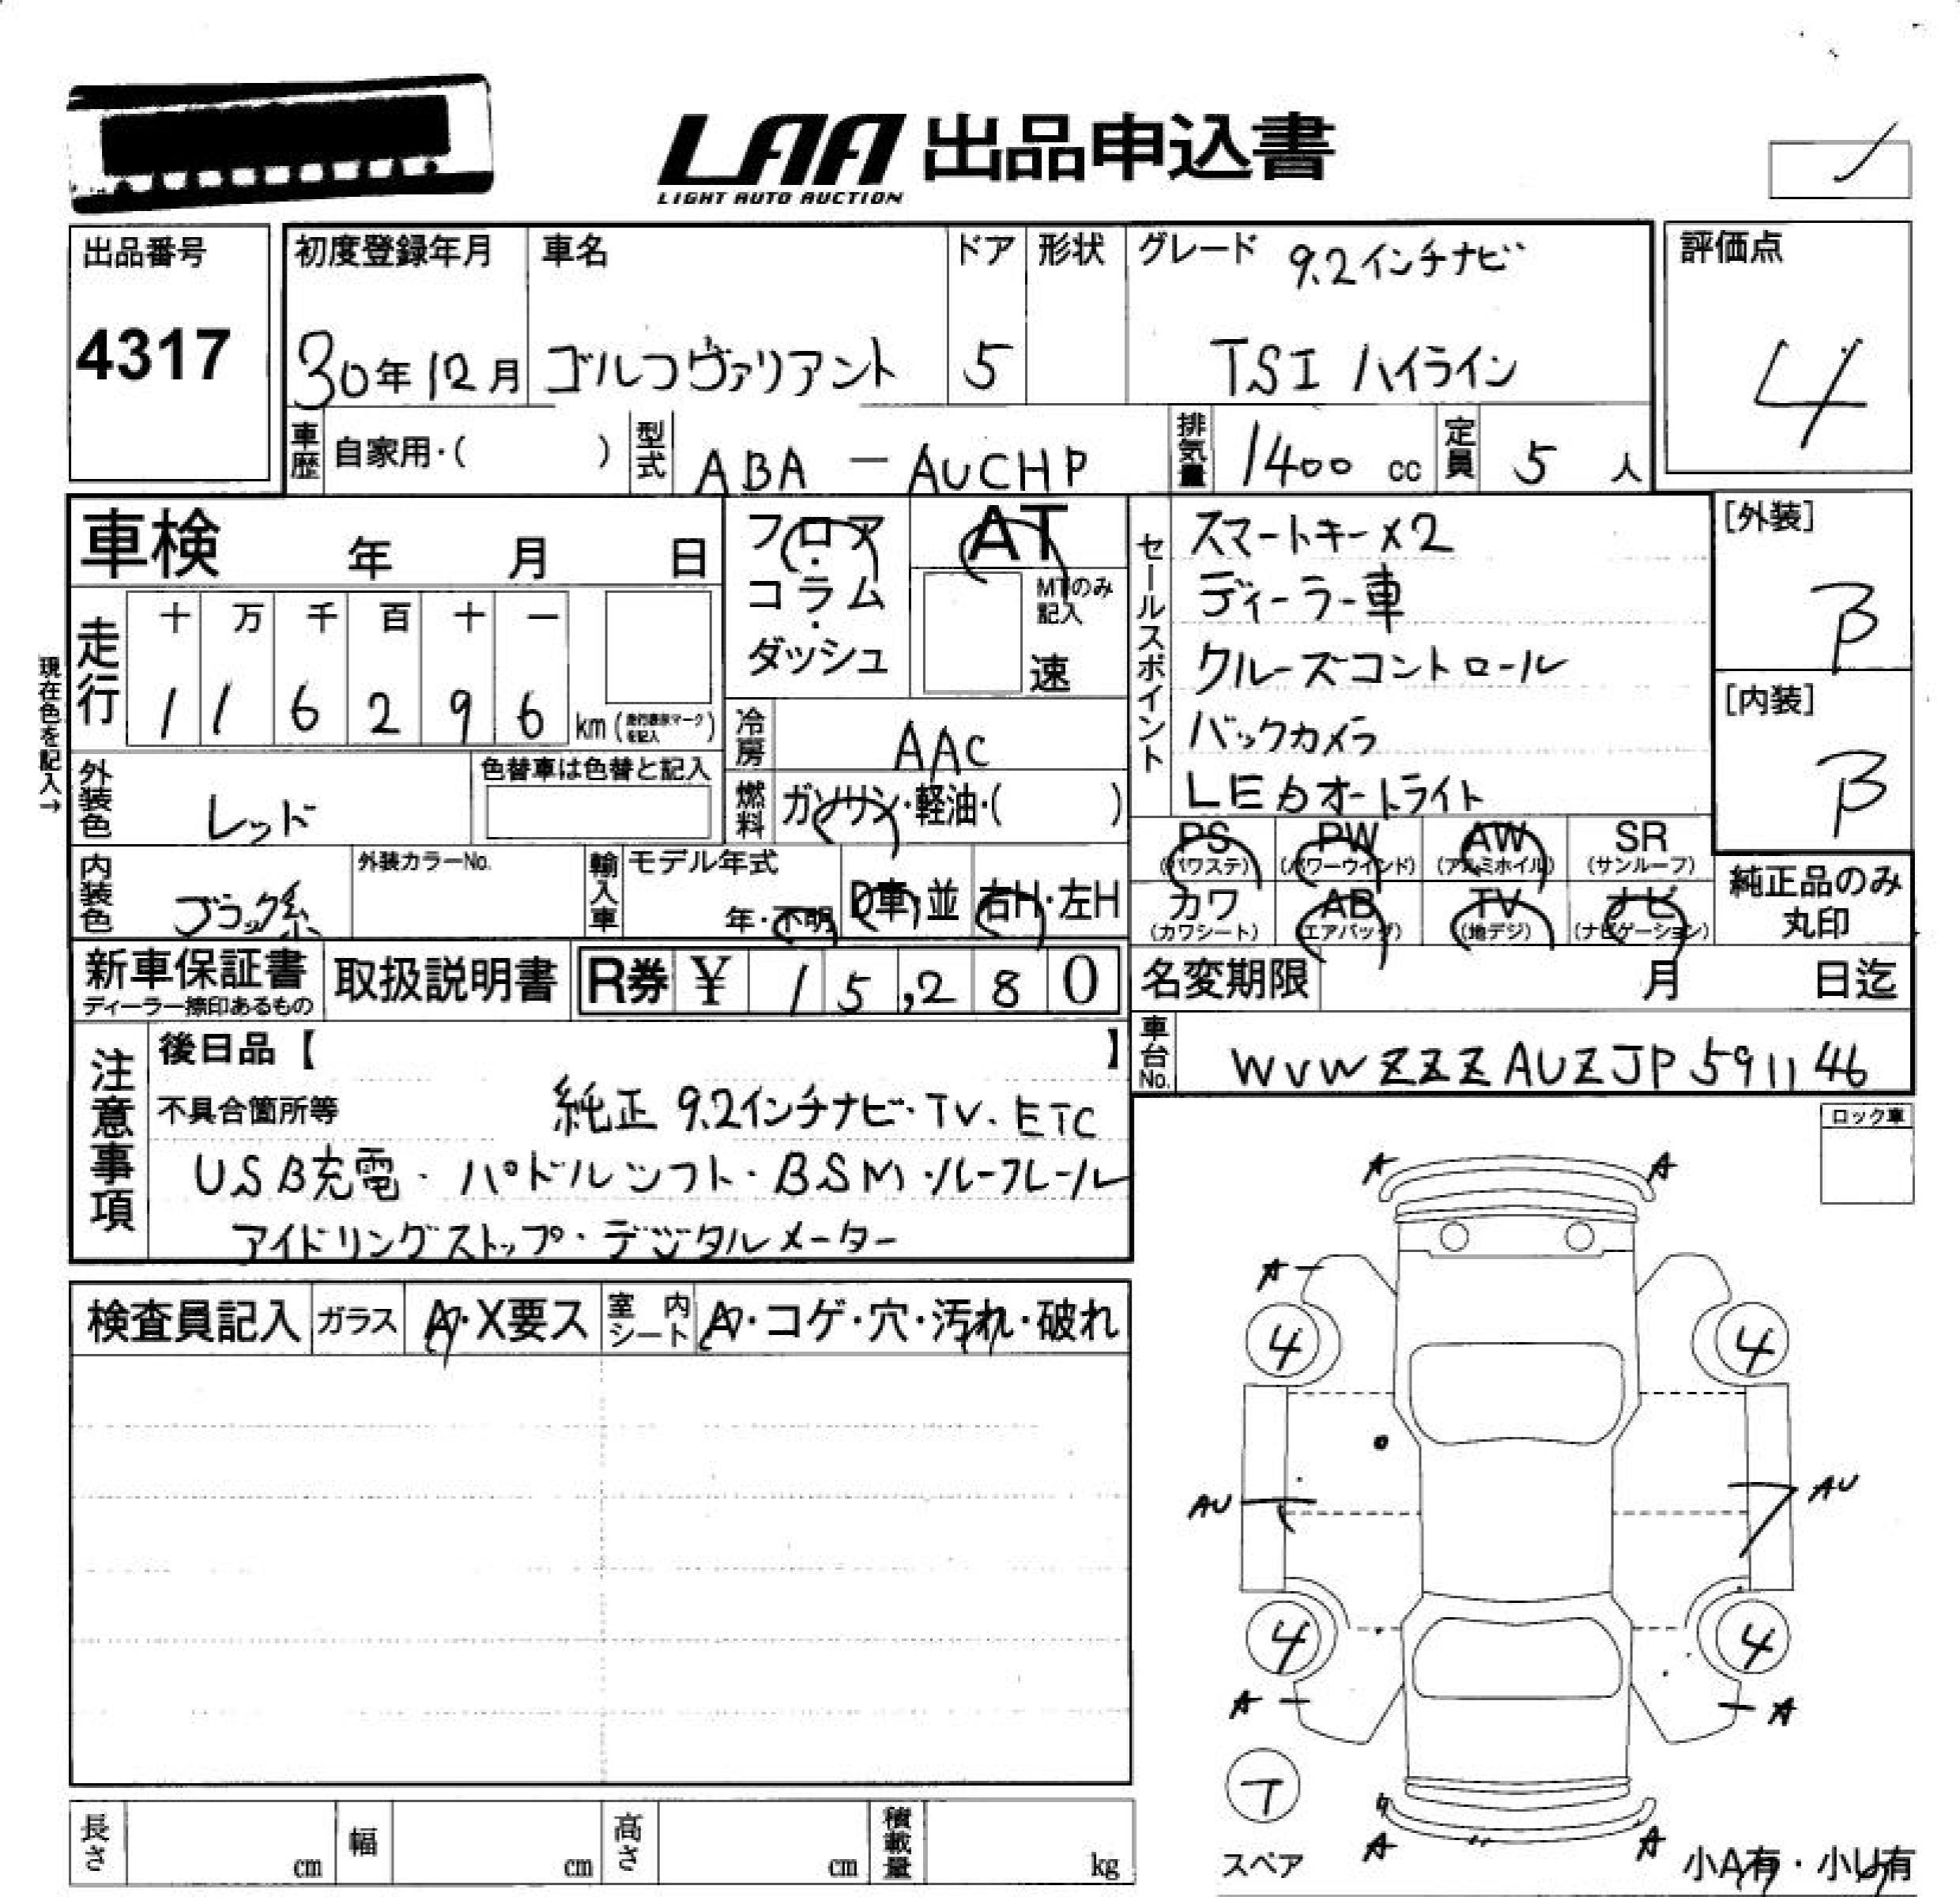 LAA 出品申込書
LIGHT AUTO AUCTION
出品番号
4317
初度登録年月
30年12月
車名
ゴルフヴァリアント
ドア
5
形状
グレード 9.2インチナビ
TSI ハイライン
評価点
4
車歴 自家用・( )
型式 ABA - AUCHP
排気量 1400 cc
定員 5 人
車検 年 月 日
フロア・コラム・ダッシュ
AT
MTのみ記入
速
セールスポイント
スマートキー×2
ディーラー車
クルーズコントロール
バックカメラ
LEDオートライト
[外装]
B
[内装]
B
現在色を記入→
走行
十 万 千 百 十 一
1 1 6 2 9 6 km (走行換算マークを記入)
冷房 AAC
外装色 レッド
色替車は色替と記入
燃料 ガソリン・軽油・( )
PS (パワステ)
PW (パワーウィンド)
AW (アルミホイル)
SR (サンルーフ)
カワ (カワシート)
AB (エアバッグ)
TV (地デジ)
ナビ (ナビゲーション)
純正品のみ丸印
内装色 ブラック系
外装カラーNo.
輸入車
モデル年式
年・不明
D車・並
右H・左H
新車保証書
ディーラー捺印あるもの
取扱説明書
R券 ¥ 15,280
名変期限 月 日迄
車台No. WVWZZZAUZJP591146
注意事項
後日品【 】
不具合箇所等 純正 9.2インチナビ・TV・ETC
USB充電・パドルシフト・BSM・ルーフレール
アイドリングストップ・デジタルメーター
ロック車
検査員記入
ガラス
A・X要ス
室内シート
A・コゲ・穴・汚れ・破れ
A A
A
4 4
AU AU
4 4
A A
T
スペア
A A
小A有・小U有
長さ cm
幅 cm
高さ cm
積載量 kg